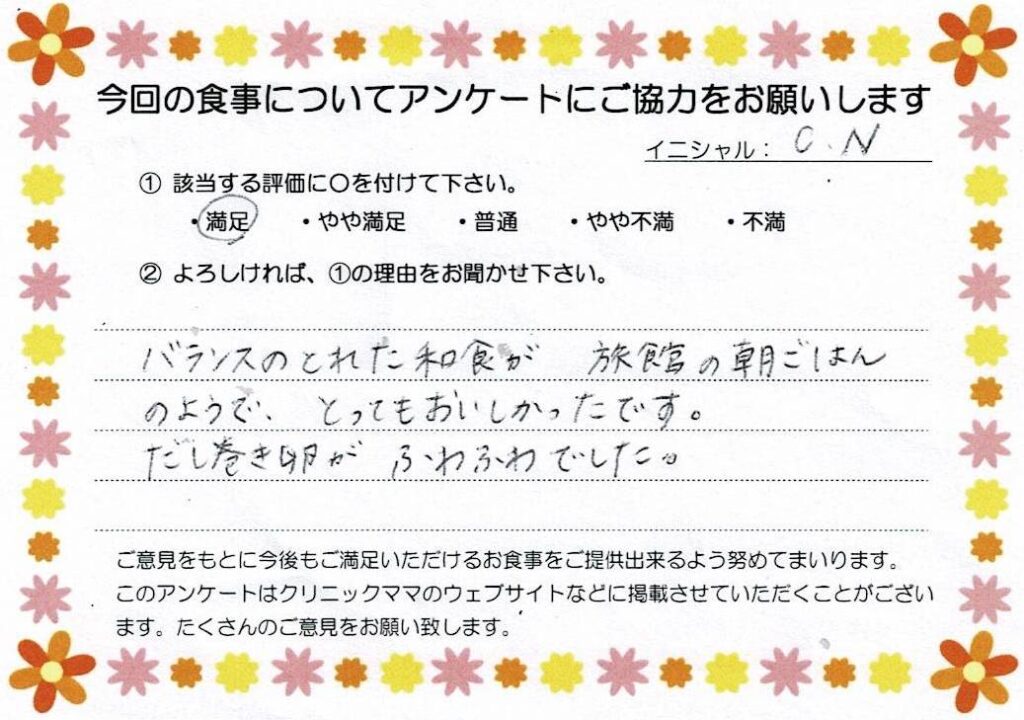 今回の食事についてアンケートにご協力をお願いします
イニシャル： C.N
① 該当する評価に〇を付けて下さい。
・満足 ・やや満足 ・普通 ・やや不満 ・不満
② よろしければ、①の理由をお聞かせ下さい。
バランスのとれた和食が 旅館の朝ごはん
のようで、とってもおいしかったです。
だし巻き卵が ふわふわでした。
ご意見をもとに今後もご満足いただけるお食事をご提供出来るよう努めてまいります。
このアンケートはクリニックママのウェブサイトなどに掲載させていただくことがござい
ます。たくさんのご意見をお願い致します。